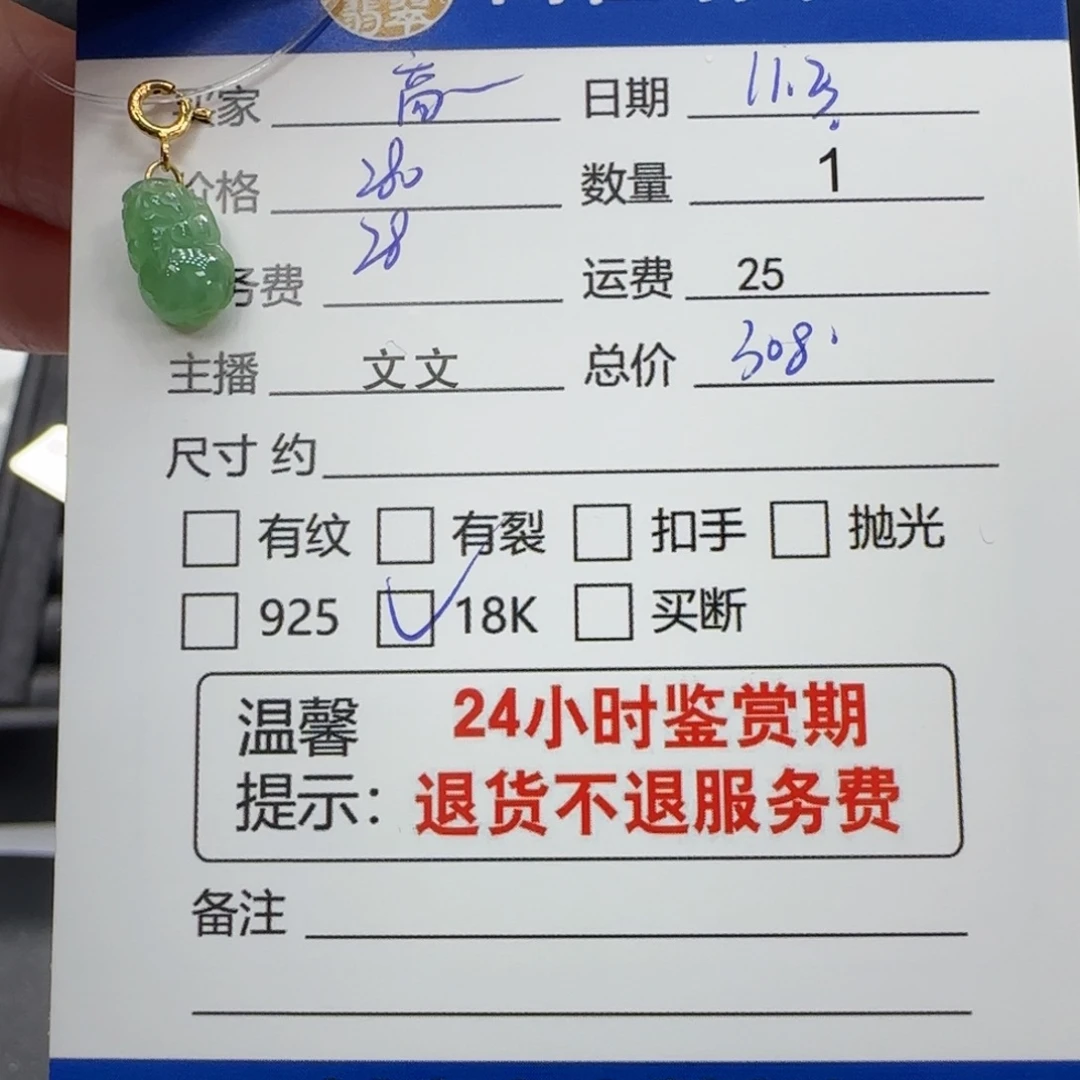 翡翠
买家 高一 日期 11.23
价格 280 数量 1
务费 28 运费 25
主播 文文 总价 308
尺寸 约
有纹 有裂 扣手 抛光
925 18K 买断
温馨 24小时鉴赏期
提示: 退货不退服务费
备注